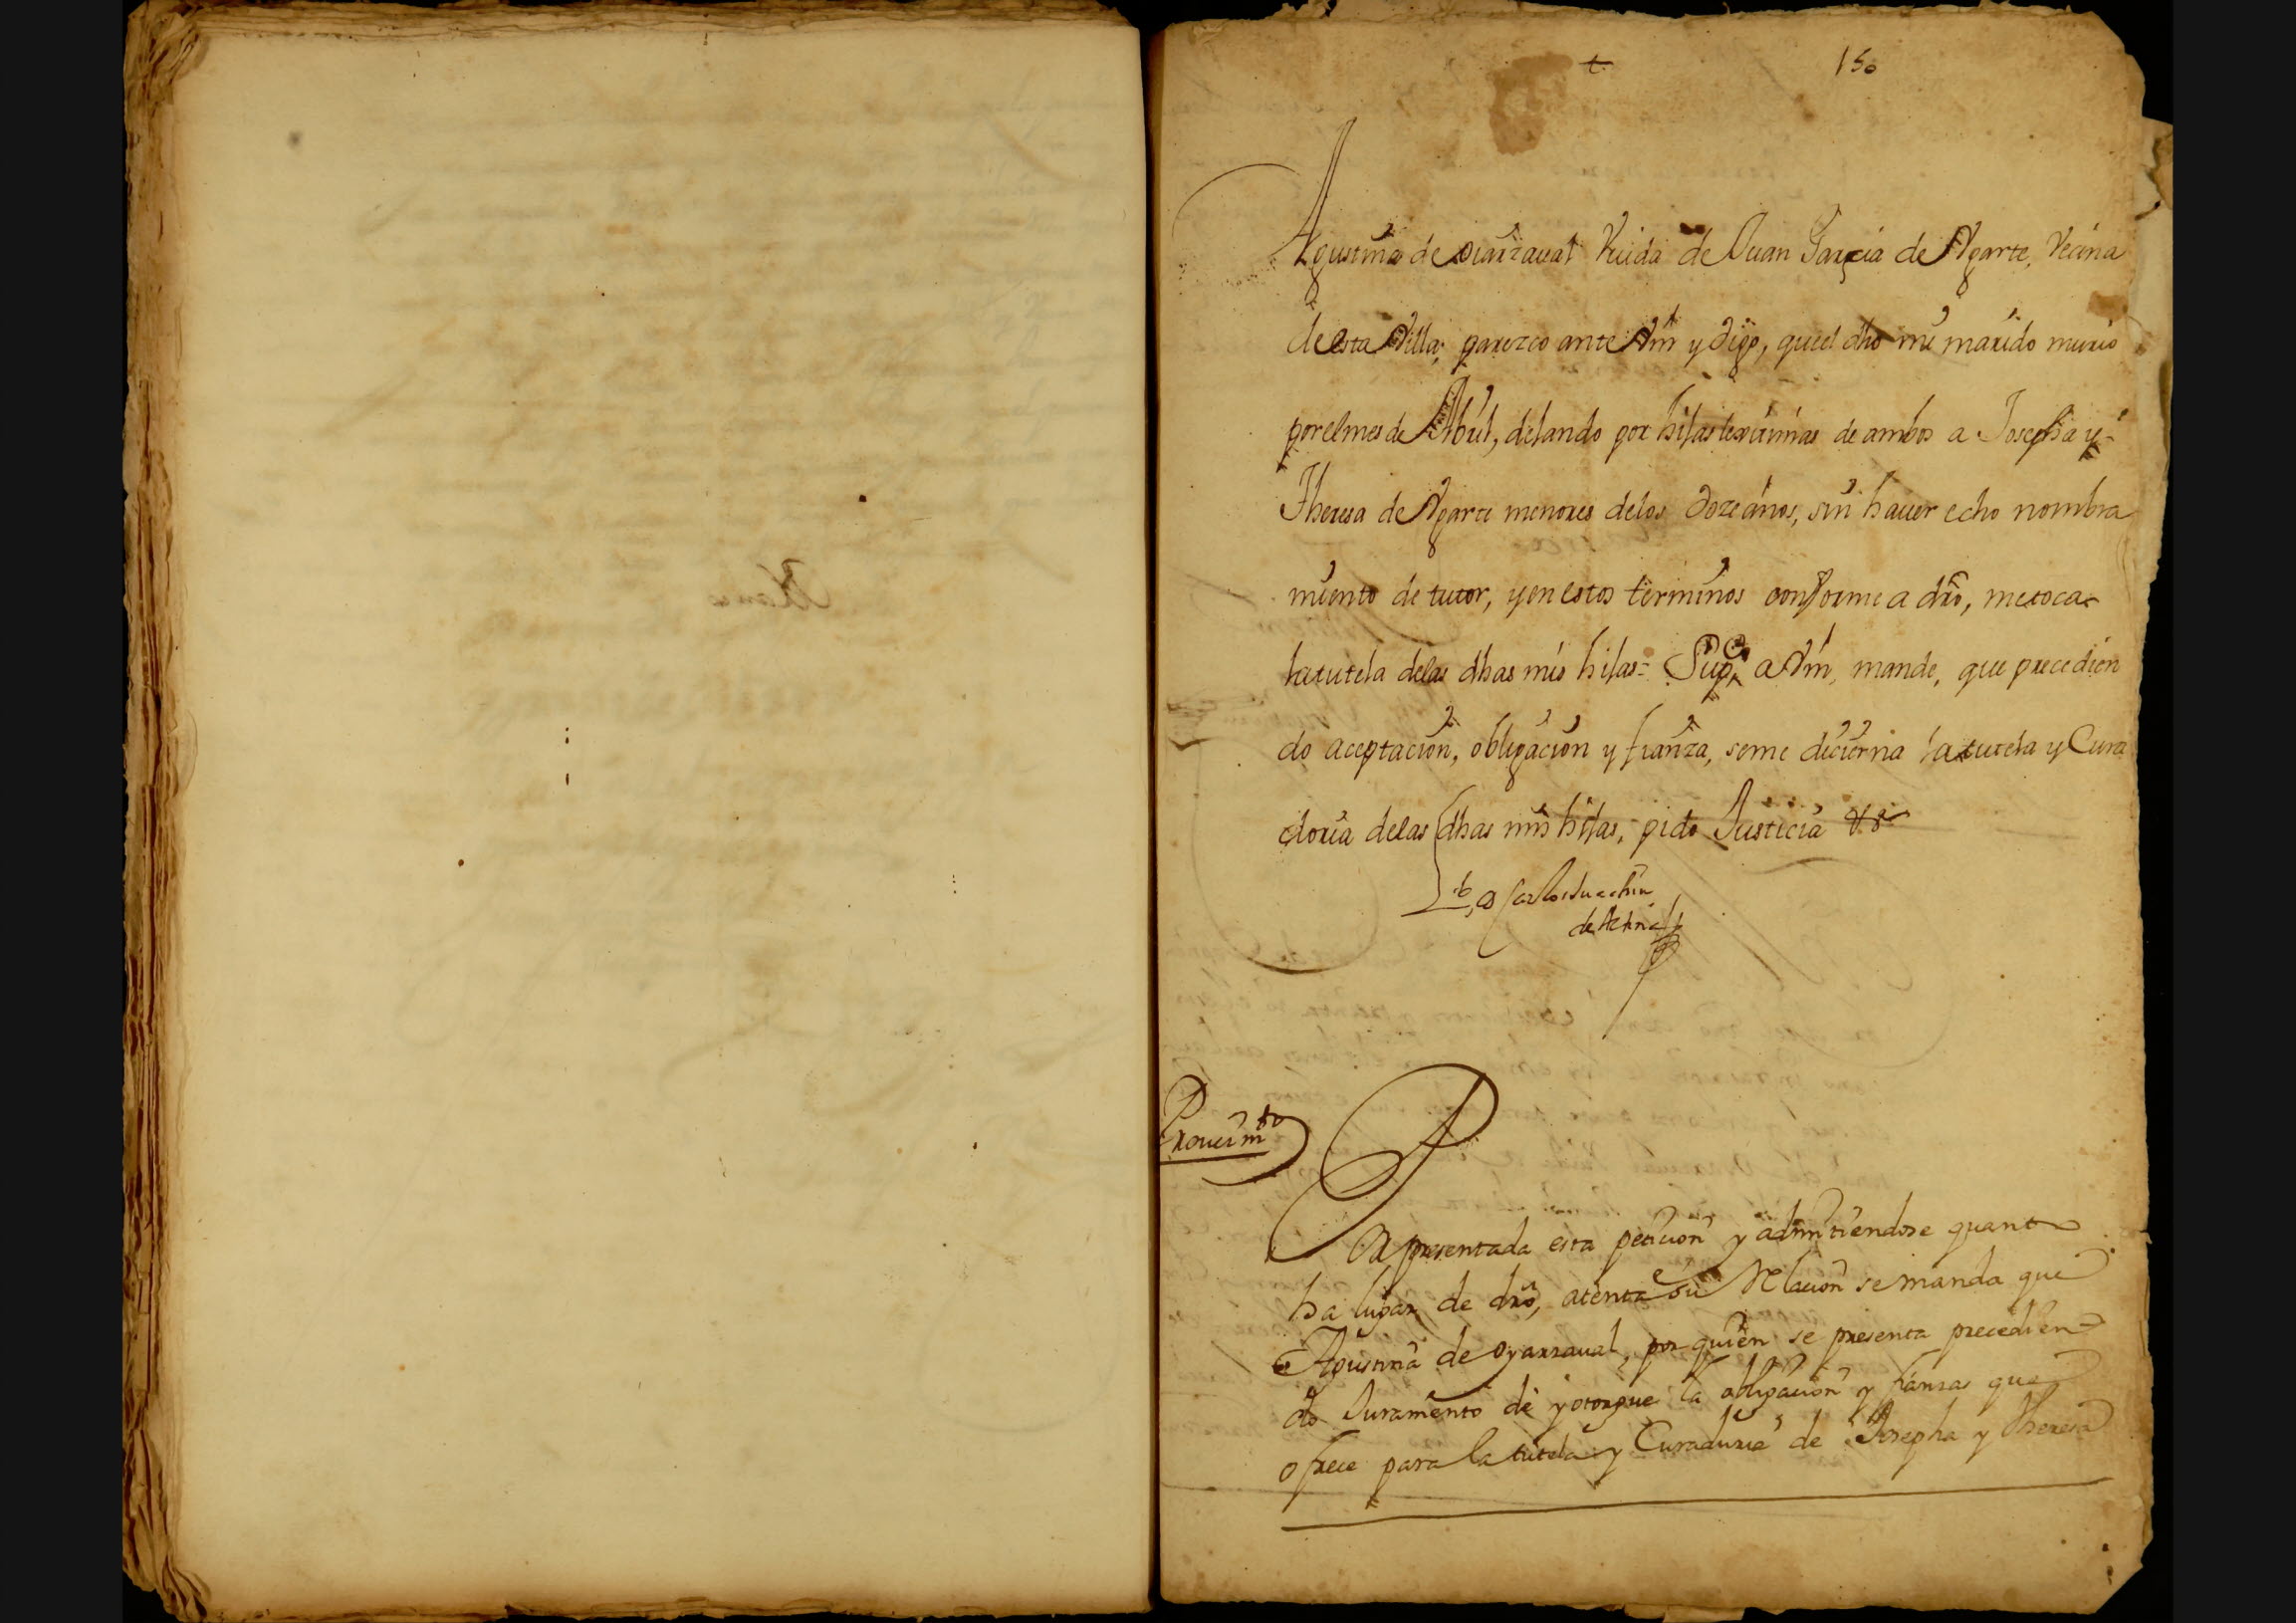 150
Agustina de oiarzaual Viuda de Juan Garçia de Vgarte, Vecina
de esta Villa, parezco ante Vm y digo, que el dho mi marido murio
por el mes de Abril, dejando por hijas lexitimas de ambos a Josepha y
Theresa de Vgarte menores de los doze años, sin hauer echo nombra
miento de tutor, y en estos terminos conforme a dro, me toca
la tutela delas dhas mis hijas = Supco a Vm, mande, que precedien
do aceptacion, obligacion y fianza, seme dicierna la tutela y Cura
doria delas dhas mis hijas, pido Justicia &
Carlos
de
Proueimto
Por presentada esta peticion y admitiendose quanto
ha lugar de dro, atenta su Relacion se manda que
Agustina de oyarzaual, por quien se presenta precedien
do Juramento dè y otorgue la obligacion y fianzas que
ofrece para la tutela y Curaduria de Josepha y Theresa